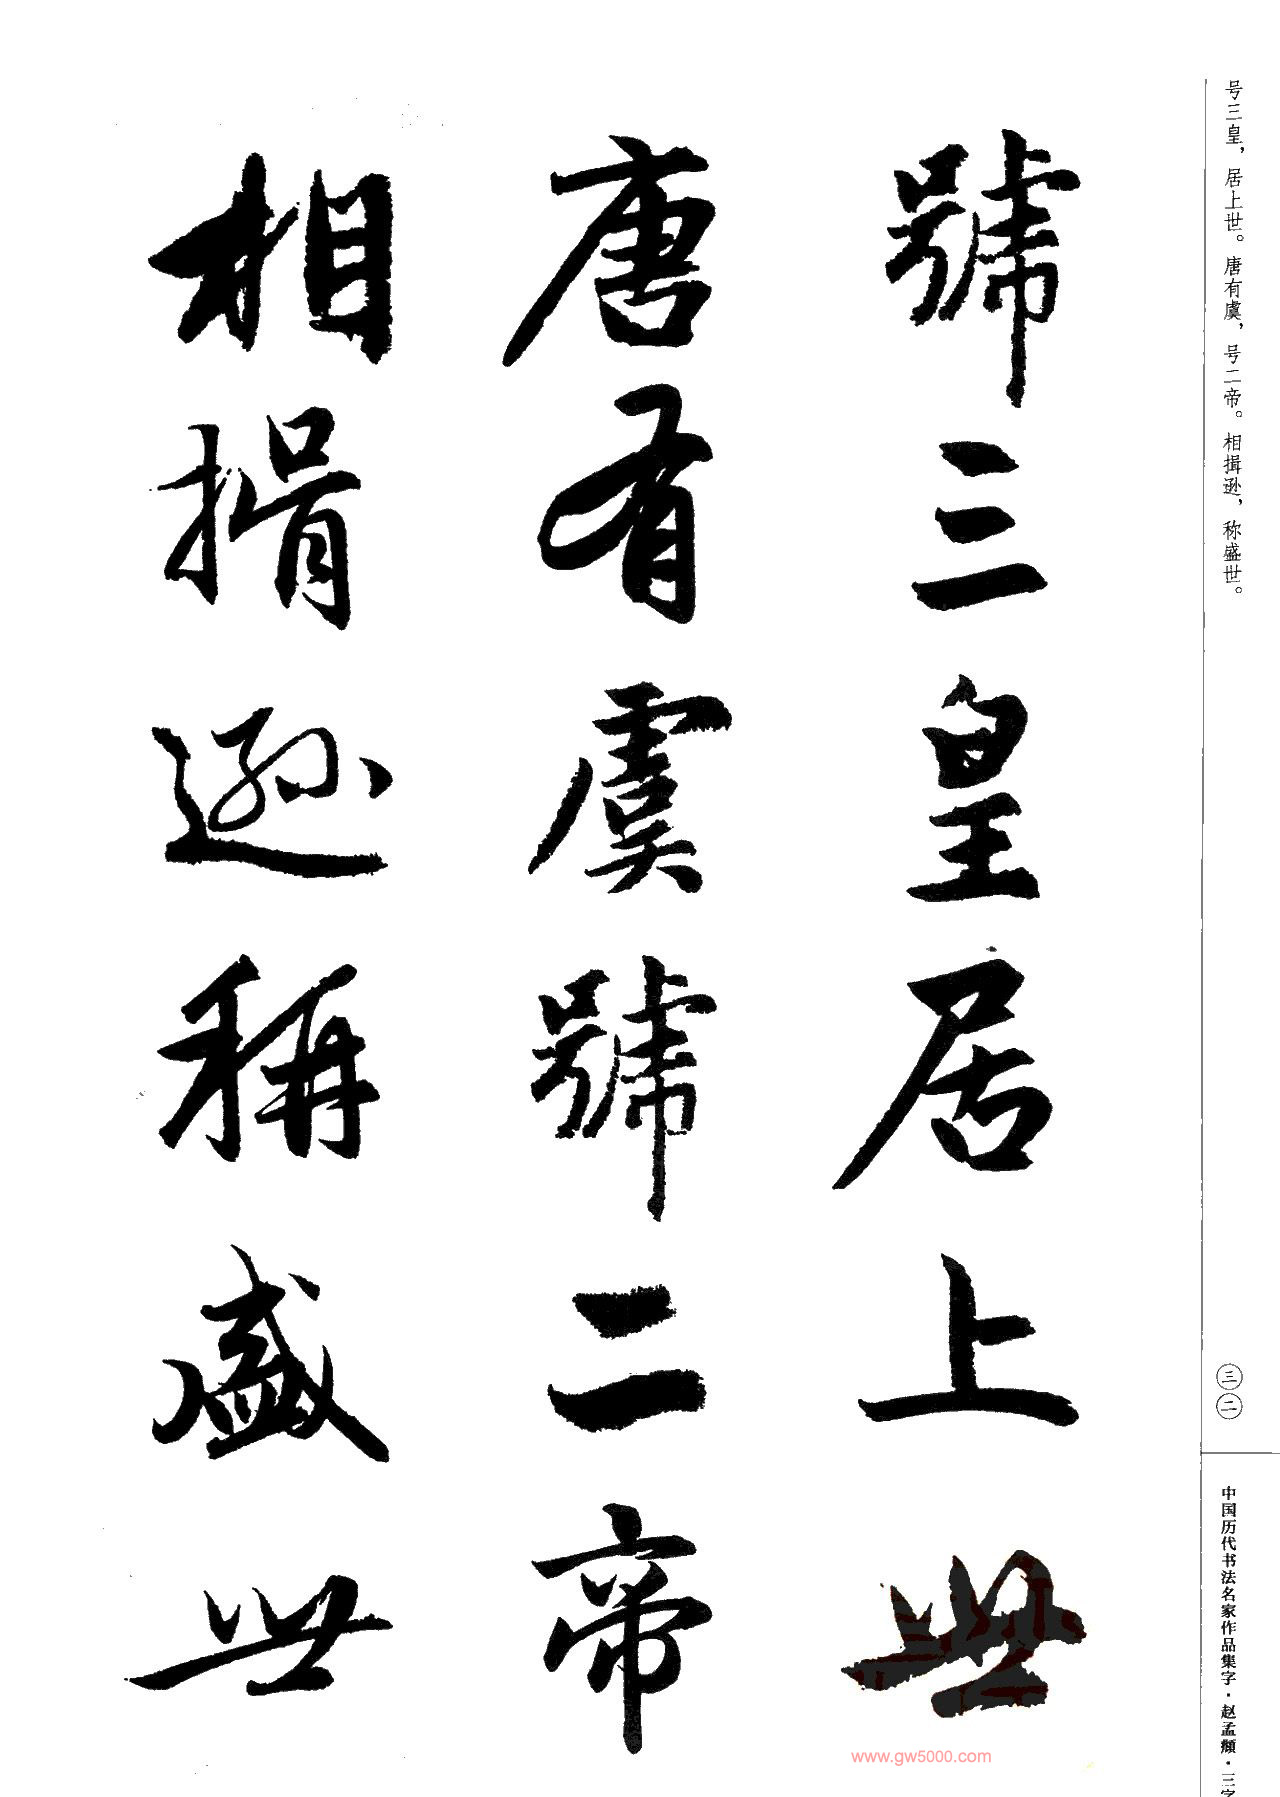 号三皇，居上世。唐有虞，号二帝。相揖逊，称盛世。
三二
中国历代书法名家作品集字·赵孟頫·三字
號三皇居上世
唐有虞號二帝
相揖遜稱盛世
www.gw5000.com